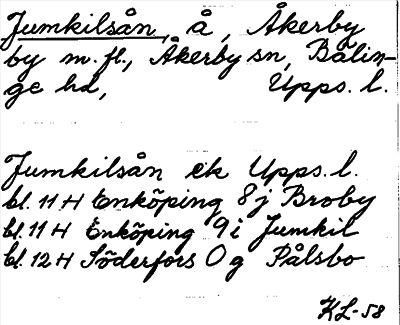 Jumkilsån, å, Åkerby
by m.fl., Åkerby sn, Bälin-
ge hd, Upps. l.
Jumkilsån ek Upps. l.
bl. 11 H Enköping 8 j Broby
bl. 11 H Enköping 9 i Jumkil
bl. 12 H Söderfors 0 g Pålsbo
KL-58